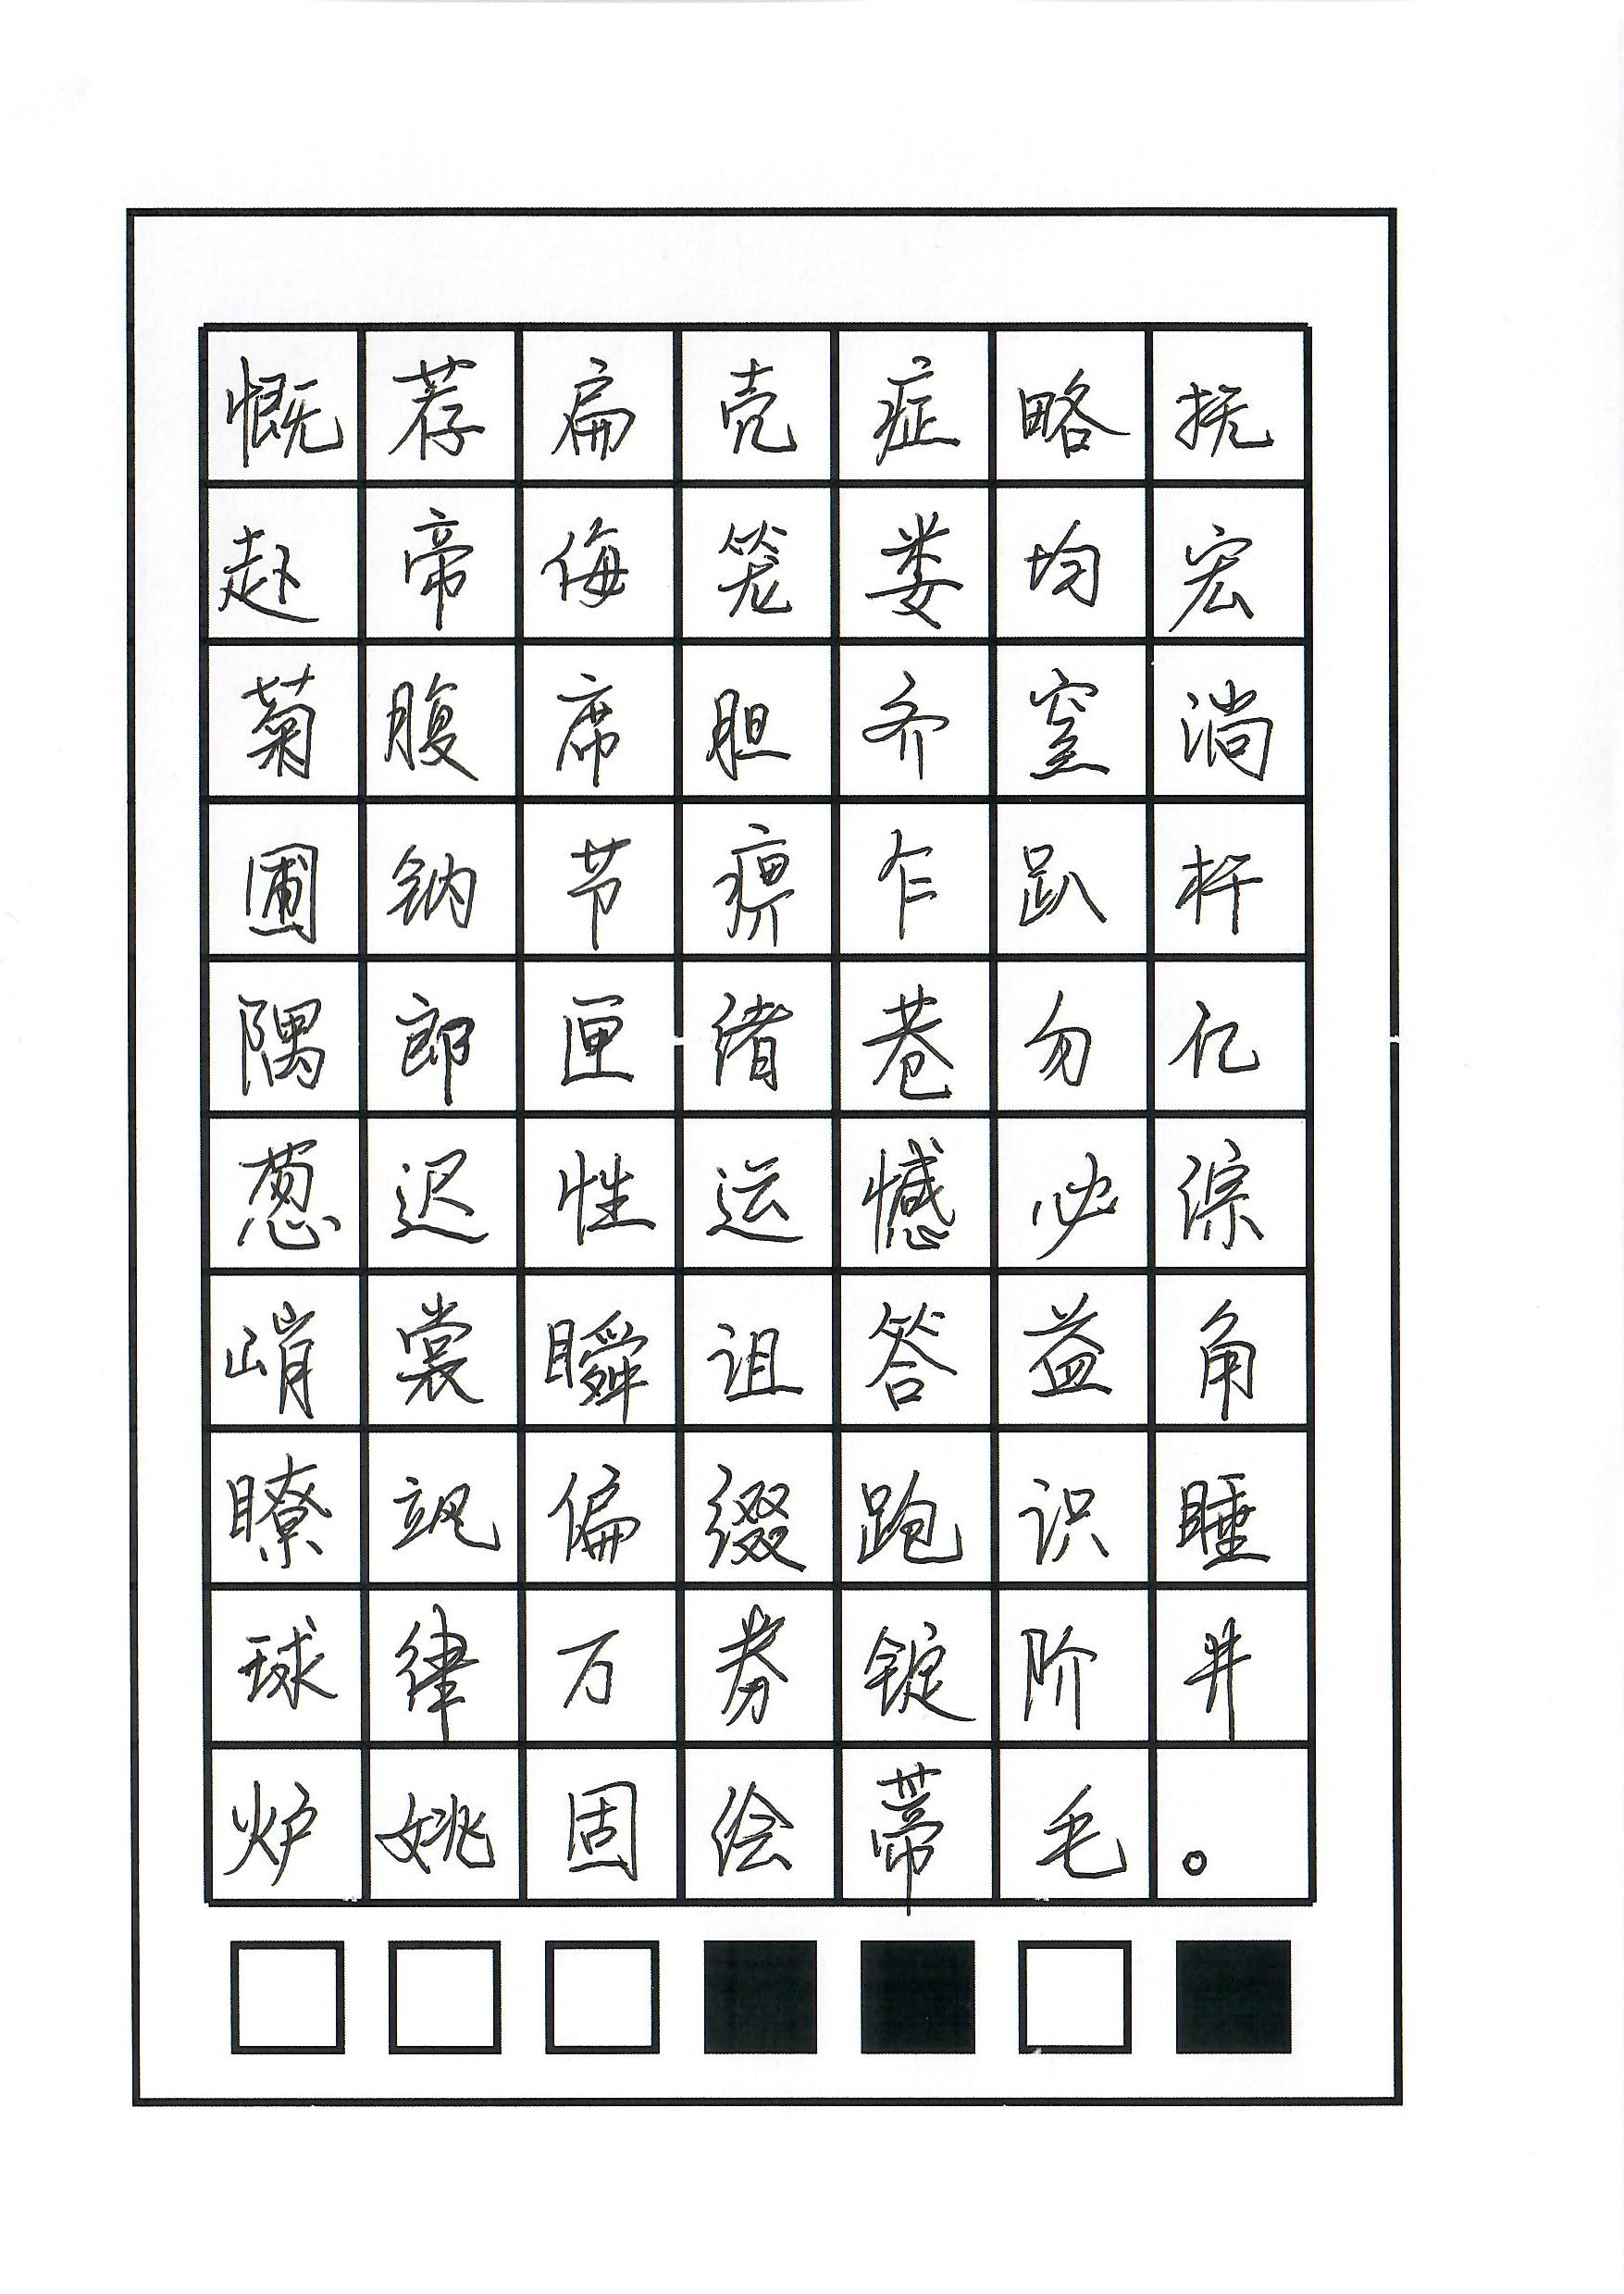 慨荐扁壳症略抚
赴帝侮笼娄均宏
菊腹席胆齐窒淌
圃钠节痹乍趴杆
隅郎匣绪巷勿亿
葱迟性运憾必综
峭裳瞬诅答益角
瞭飒偏缀跑识睡
球律万券锭阶井
炉姚固绘蒂毛。